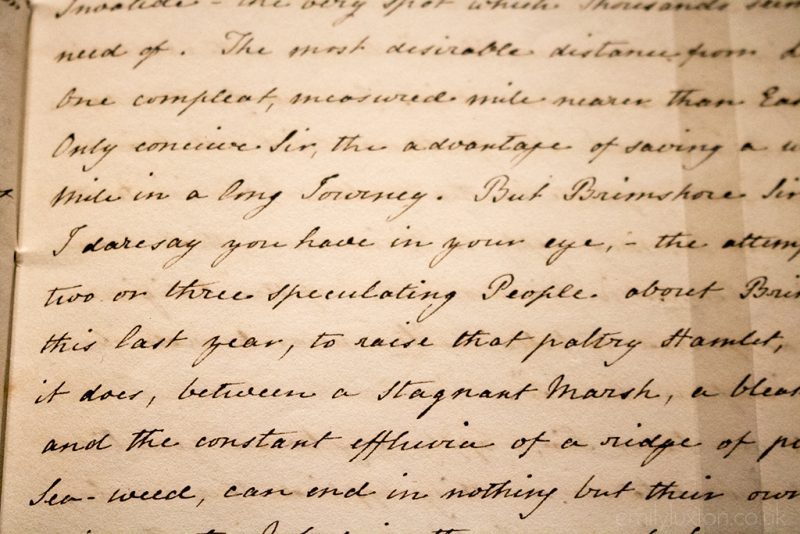 Invalide - the very spot which Thousands seem
need of. The most desirable distance from
One compleat, measured mile nearer than Eas
Only conceive Sir, the advantage of saving a
Mile in a long Journey. But Brimshore Sir
I daresay you have in your eye, - the attemp
two or three speculating People about Brin
this last year, to raise that paltry Hamlet,
it does, between a stagnant Marsh, a bleak
and the constant effluvia of a ridge of pu
Sea-weed, can end in nothing but their own
emilyluxton.co.uk